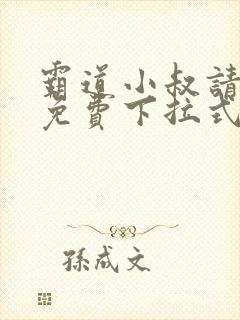 霸道小叔請
免費下拉式
孫成文